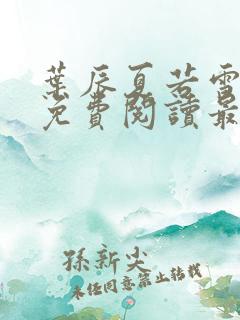 葉辰夏若雪
免費閱讀最
孫新尖
未經同意禁止轉載